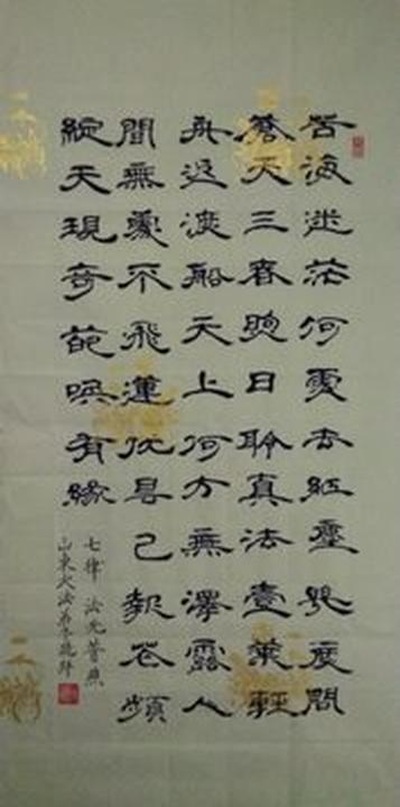 苦海迷茫何處去紅塵幾度問
蒼天三春煦日聆真法壹葉輕
舟返渡船天上何方無澤露人
間無處不飛蓮优昙已報花頻
綻天現奇葩喚有緣
七律 法光普照
山東大法弟子敬拜